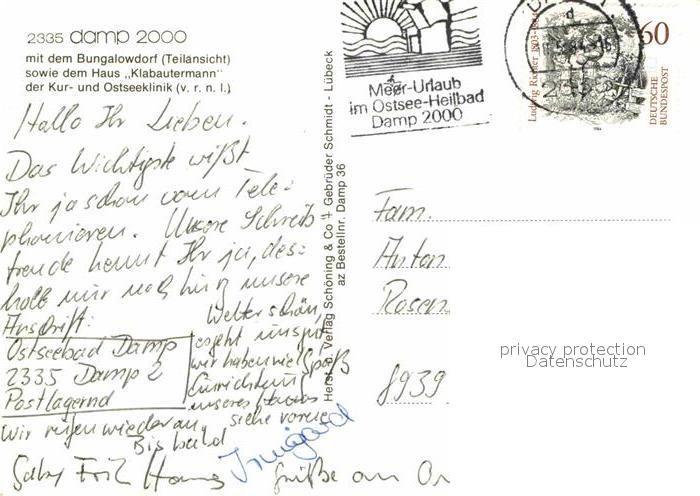 2335 damp 2000
mit dem Bungalowdorf (Teilansicht)
sowie dem Haus „Klabautermann"
der Kur- und Ostseeklinik (v. r. n. l.)
Hallo Ihr Lieben.
Das Wichtigste wißt
Ihr ja schon vom Tele-
phonieren. Unsere Schreib-
freude kennt Ihr ja, des-
halb nur noch kurz unsere
Anschrift:
Ostseebad Damp
2335 Damp 2
Postlagernd
Wetter schön,
es geht uns gut
wir haben viel Spaß
Einrichtung
unseres Hauses
siehe vorne
Wir rufen wieder an,
Bis bald
Gaby Fritz Hannes Irmgard Grüße an
Herst. u. Verlag Schöning & Co + Gebrüder Schmidt - Lübeck
az Bestellnr. Damp 36
Meer-Urlaub
im Ostsee-Heilbad
Damp 2000
Ludwig Richter 1803-1884
60
DEUTSCHE
BUNDESPOST
Fam.
Anton
Rosen
8939
privacy protection
Datenschutz